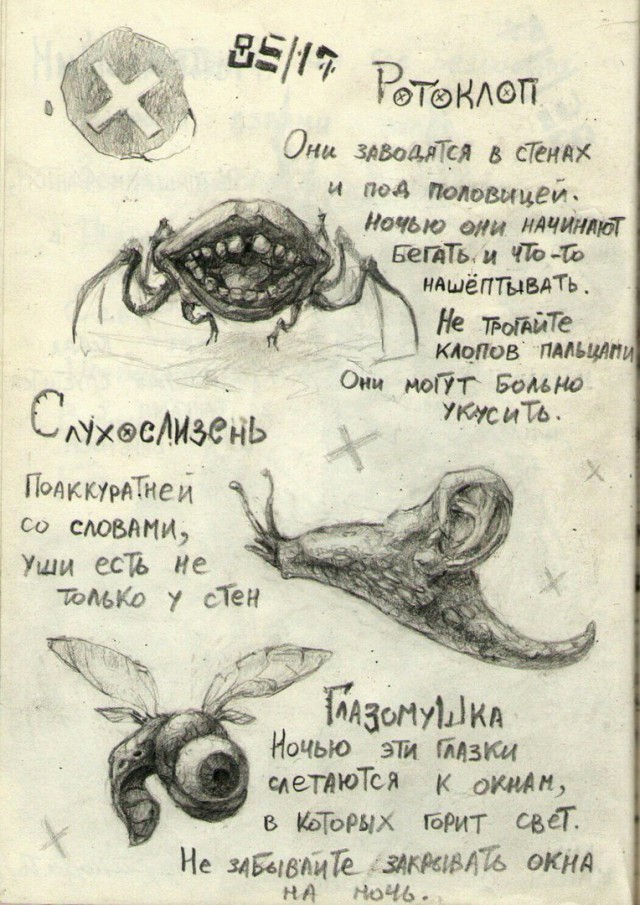 85/17
Ротоклоп
Они заводятся в стенах
и под половицей.
Ночью они начинают
бегать и что-то
нашёптывать.
Не трогайте
клопов пальцами
Они могут больно
укусить.
Слухослизень
Поаккуратней
со словами,
уши есть не
только у стен
Глазомушка
Ночью эти глазки
слетаются к окнам,
в которых горит свет.
Не забывайте закрывать окна
на ночь.